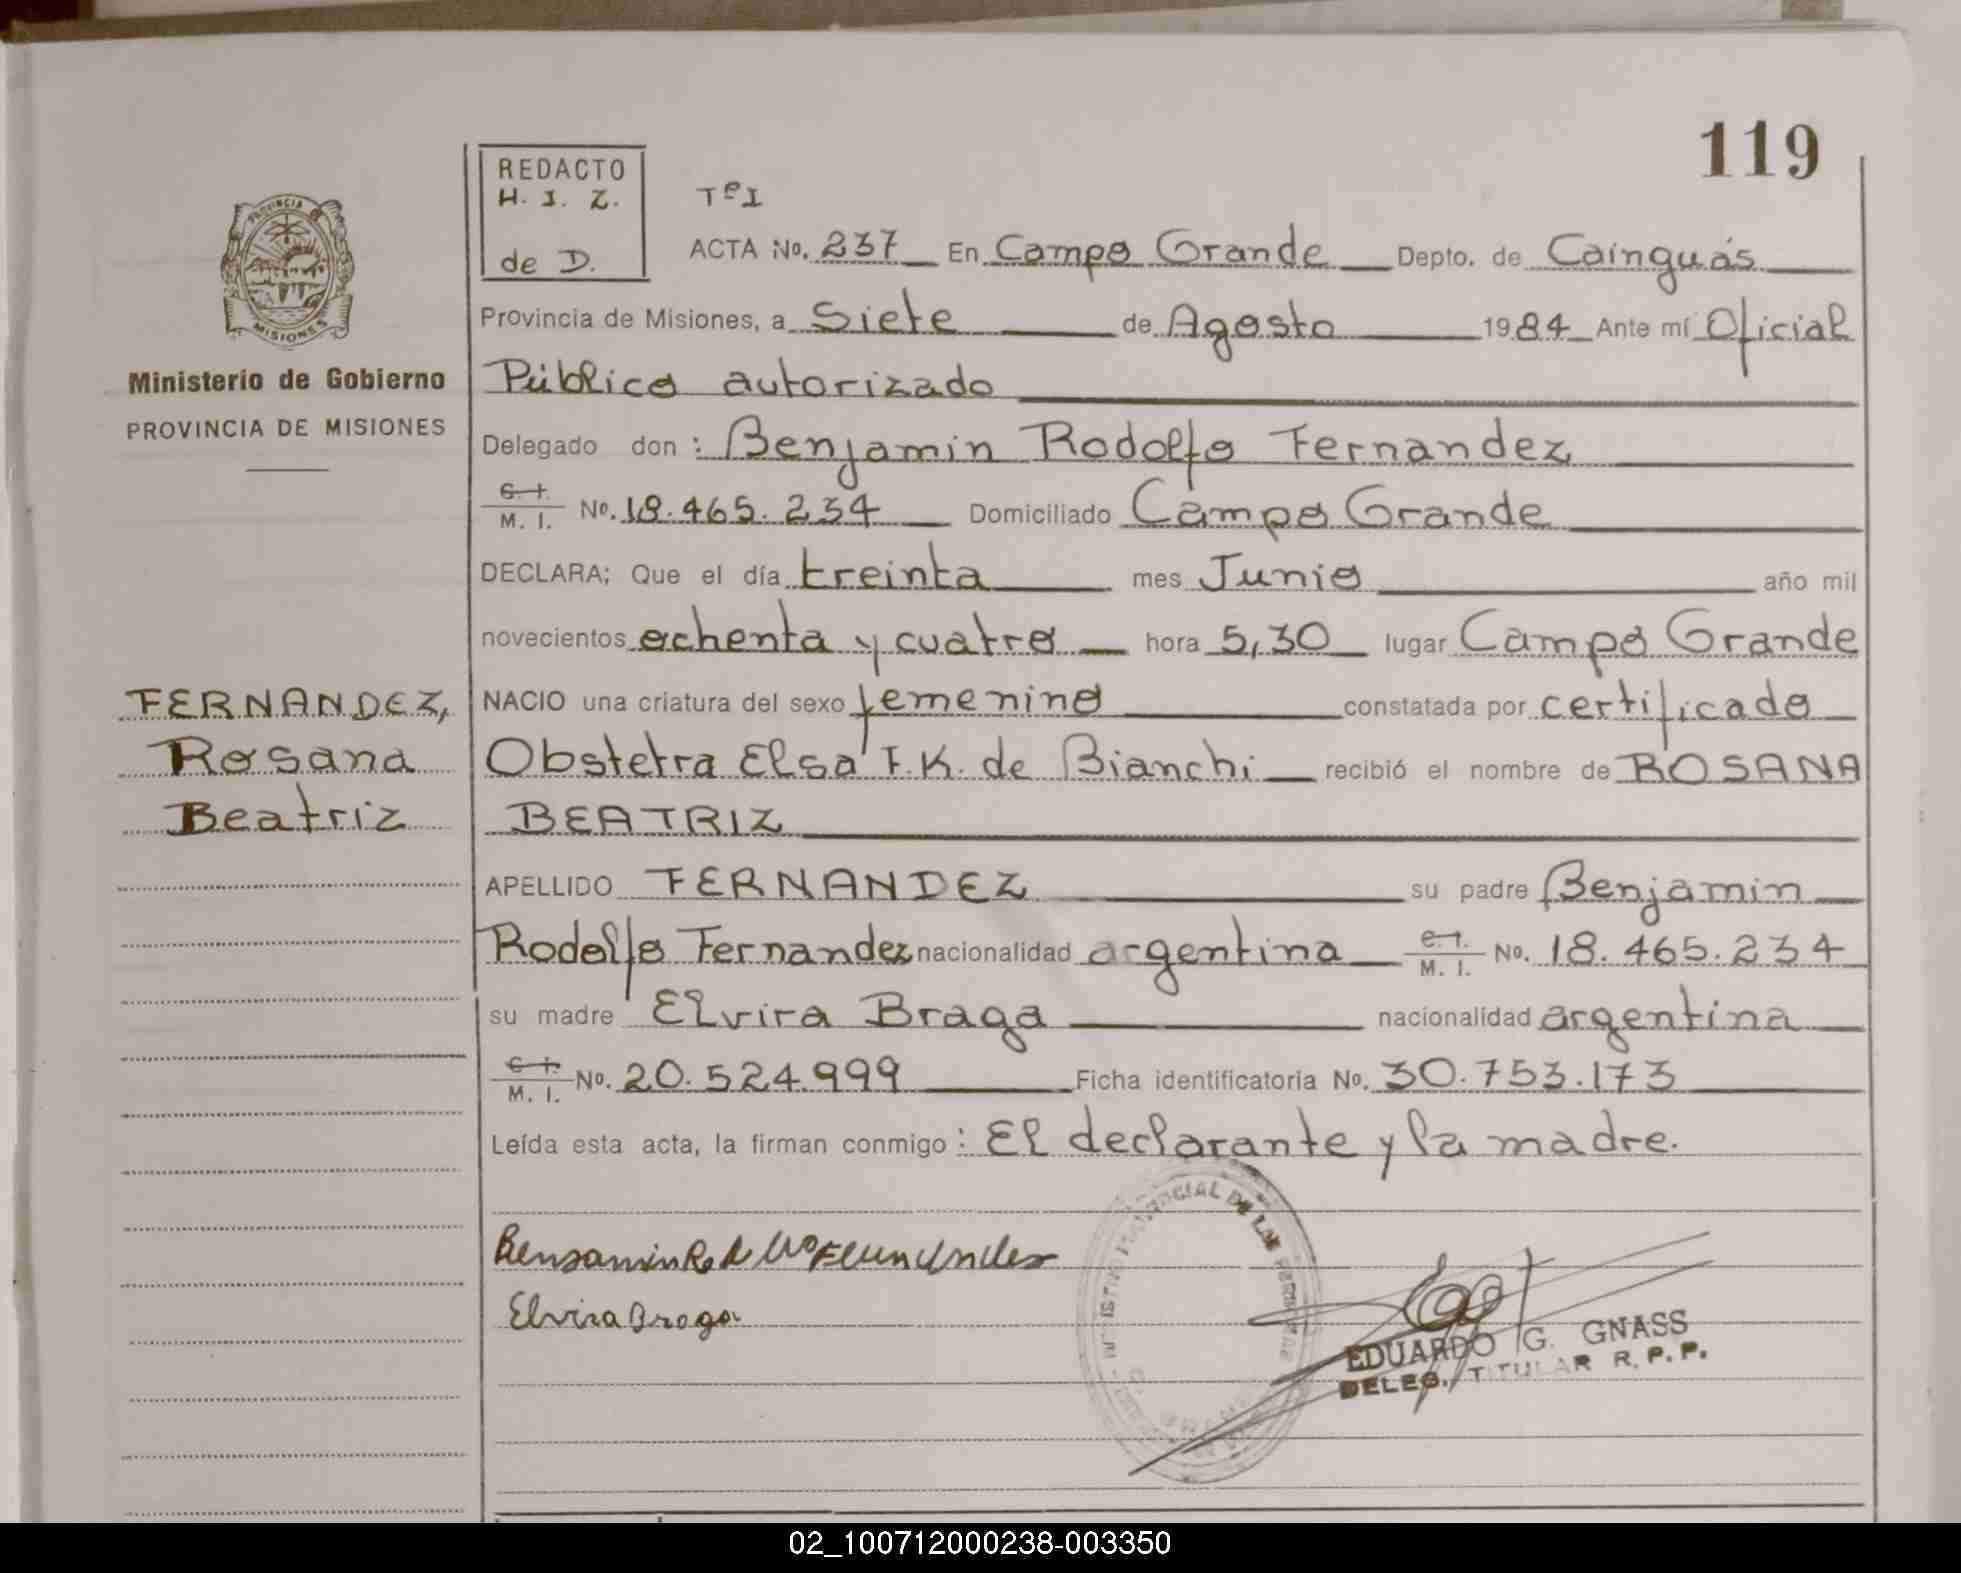 119
REDACTO
H. I. Z.
de D.
Tº I
PROVINCIA
MISIONES
Ministerio de Gobierno
PROVINCIA DE MISIONES
ACTA No. 237 En Campo Grande Depto. de Cainguás
Provincia de Misiones, a Siete de Agosto 1984 Ante mí Oficial
Público autorizado
Delegado don: Benjamin Rodolfo Fernandez
C. I. M. I. No. 18.465.234 Domiciliado Campo Grande
DECLARA; Que el día treinta mes Junio año mil
novecientos ochenta y cuatro hora 5,30 lugar Campo Grande
FERNANDEZ,
Rosana
Beatriz
NACIO una criatura del sexo femenino constatada por certificado
Obstetra Elsa F.K. de Bianchi recibió el nombre de ROSANA
BEATRIZ
APELLIDO FERNANDEZ su padre Benjamin
Rodolfo Fernandez nacionalidad argentina C. I. M. I. No. 18.465.234
su madre Elvira Braga nacionalidad argentina
C. I. M. I. No. 20.524.999 Ficha identificatoria No. 30.753.173
Leída esta acta, la firman conmigo: El declarante y la madre.
Elvira Braga
PROVINCIAL DE LAS PERSONAS
EDUARDO G. GNASS
DELEG. TITULAR R. P. P.
02_100712000238-003350